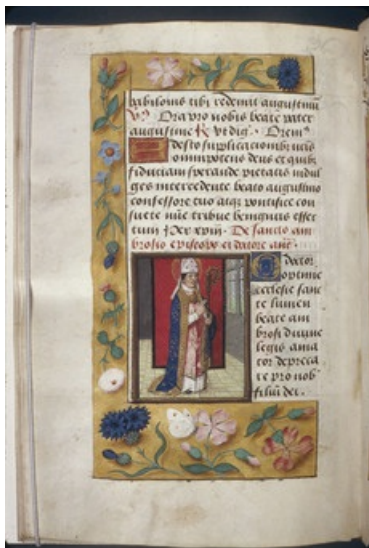 babilonis tibi redemit augustinū
Ora pro nobis beate pater
augustine R Vt dig. Orem
desto supplicacionibꝰ nr̄is
omnipotens deus et quibꝰ
fiduciam sperande pietatis indul
ges intercedente beato augustino
confessore tuo atqꝫ pontifice con
suete mīe tribue benignus effec
tum De sancto am
brosio episcopo et doctore ant
O doctor
optime
ecclesie sanc
te lumen
beate am
brosi diuine
legis ama
tor depreca
re pro nob
filiū dei.